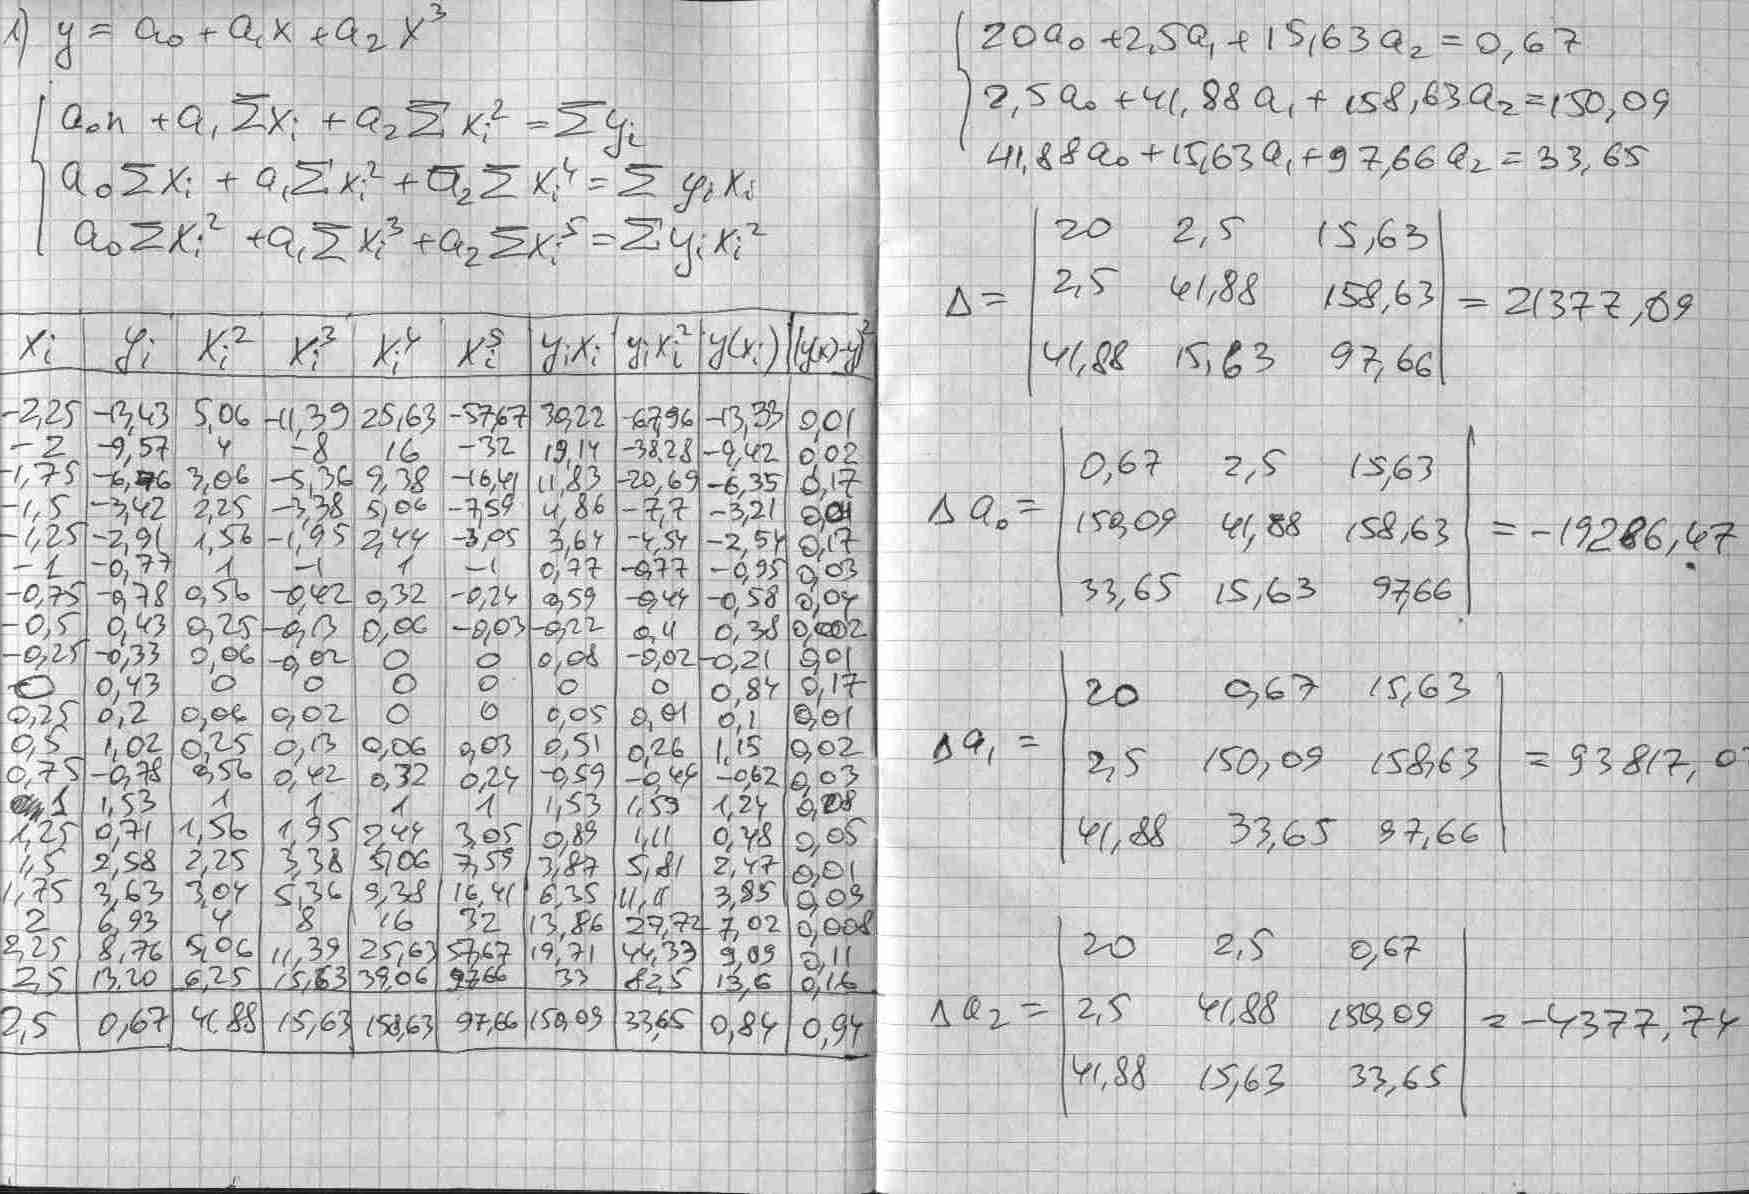 1) y = a₀ + a₁x + a₂x³
a₀n + a₁Σxᵢ + a₂Σxᵢ² = Σyᵢ
a₀Σxᵢ + a₁Σxᵢ² + a₂Σxᵢ⁴ = Σyᵢxᵢ
a₀Σxᵢ² + a₁Σxᵢ³ + a₂Σxᵢ⁵ = Σyᵢxᵢ²
xᵢ yᵢ xᵢ² xᵢ³ xᵢ⁴ xᵢ⁵ yᵢxᵢ yᵢxᵢ² y(xᵢ) (y(x)-y)²
-2,25 -13,43 5,06 -11,39 25,63 -57,67 30,22 -67,96 -13,33 0,01
-2 -9,57 4 -8 16 -32 19,14 -38,28 -9,42 0,02
-1,75 -6,76 3,06 -5,36 9,38 -16,41 11,83 -20,69 -6,35 0,17
-1,5 -3,42 2,25 -3,38 5,06 -7,59 4,86 -7,7 -3,21 0,04
-1,25 -2,91 1,56 -1,95 2,44 -3,05 3,64 -4,54 -2,54 0,17
-1 -0,77 1 -1 1 -1 0,77 -0,77 -0,95 0,03
-0,75 -0,78 0,56 -0,42 0,32 -0,24 0,59 -0,44 -0,58 0,04
-0,5 0,43 0,25 -0,13 0,06 -0,03 -0,22 0,11 0,38 0,002
-0,25 -0,33 0,06 -0,02 0 0 0,08 -0,02 -0,21 0,01
0 0,43 0 0 0 0 0 0 0,84 0,17
0,25 0,2 0,06 0,02 0 0 0,05 0,01 0,1 0,01
0,5 1,02 0,25 0,13 0,06 0,03 0,51 0,26 1,15 0,02
0,75 -0,78 0,56 0,42 0,32 0,24 -0,59 -0,44 -0,62 0,03
1 1,53 1 1 1 1 1,53 1,53 1,24 0,08
1,25 0,71 1,56 1,95 2,44 3,05 0,89 1,11 0,48 0,05
1,5 2,58 2,25 3,38 5,06 7,59 3,87 5,81 2,47 0,01
1,75 3,63 3,04 5,36 9,38 16,41 6,35 11,11 3,85 0,09
2 6,93 4 8 16 32 13,86 27,72 7,02 0,008
2,25 8,76 5,06 11,39 25,63 57,67 19,71 44,33 9,09 0,11
2,5 13,20 6,25 15,63 39,06 97,66 33 82,5 13,6 0,16
2,5 0,67 41,88 15,63 158,63 97,66 150,09 33,65 0,84 0,94
20a₀ + 2,5a₁ + 15,63a₂ = 0,67
2,5a₀ + 41,88a₁ + 158,63a₂ = 150,09
41,88a₀ + 15,63a₁ + 97,66a₂ = 33,65
20 2,5 15,63
Δ = 2,5 41,88 158,63 = 21377,09
41,88 15,63 97,66
0,67 2,5 15,63
Δa₀ = 150,09 41,88 158,63 = -19286,47
33,65 15,63 97,66
20 0,67 15,63
Δa₁ = 2,5 150,09 158,63 = 93817,0
41,88 33,65 97,66
20 2,5 0,67
Δa₂ = 2,5 41,88 150,09 = -4377,74
41,88 15,63 33,65